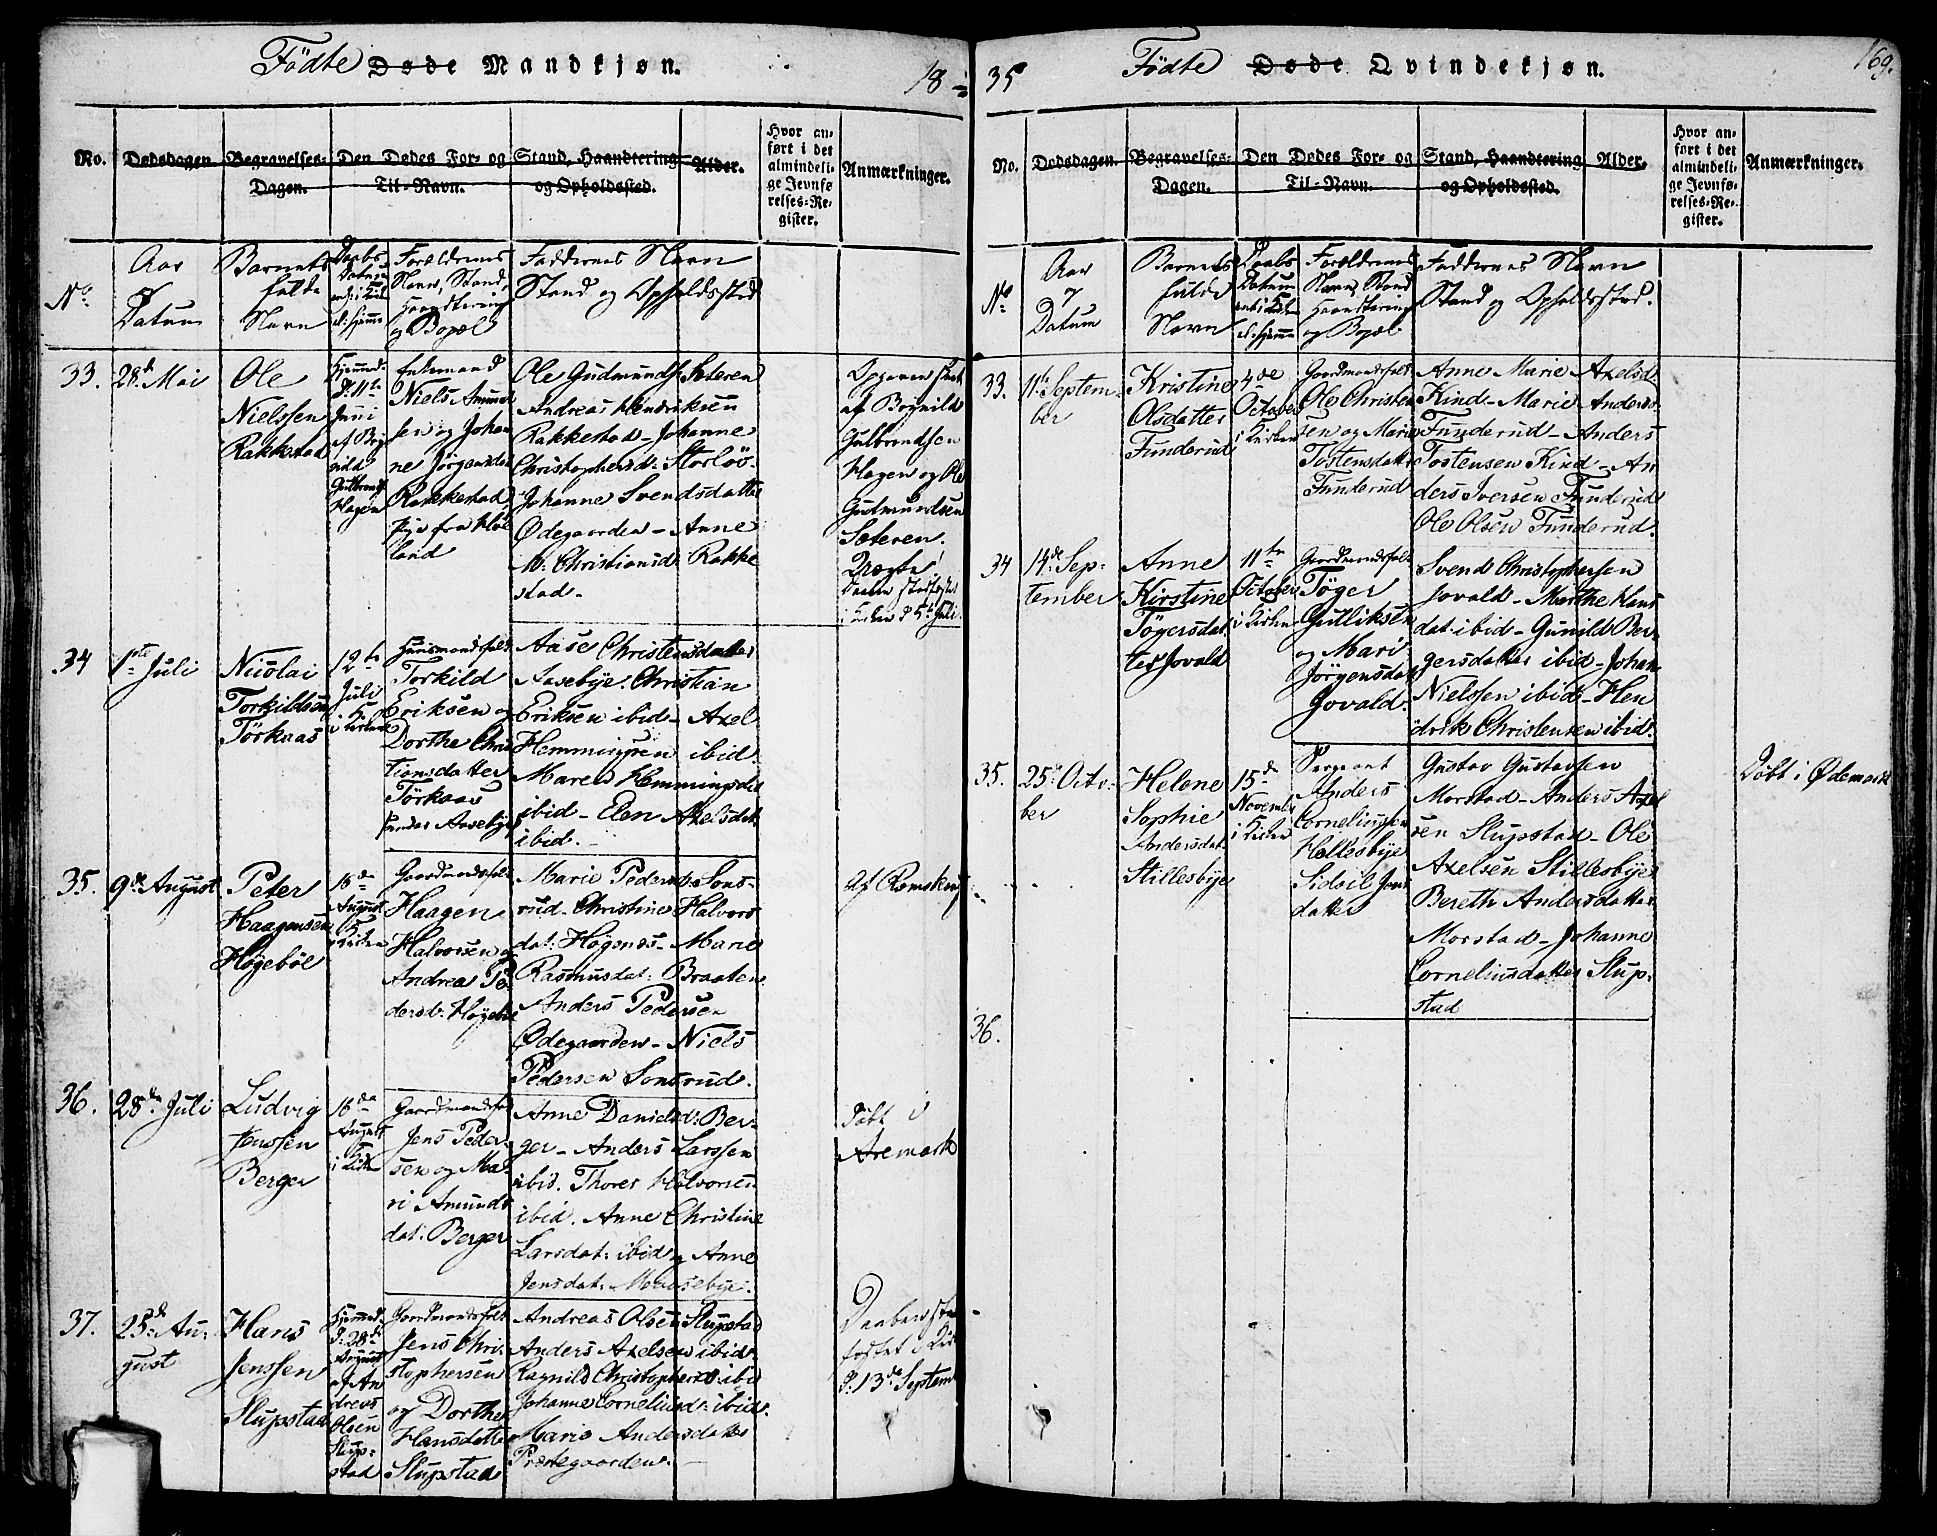 Födte Døde Mandkjøn.
18
No.
Dødsdagen.
Begravelses-
Dagen.
Den Dødes For- og
Til-Navn.
Stand, Haandtering
og Opholdssted.
Alder.
Hvor an-
ført i det
almindeli-
ge Jevnfø-
relses-Re-
gister.
Anmærkninger.
No
Aar
&
Datum
Barnets
fulde
Navn
Daabs
Datum
Forældrenes
Navn, Stand,
Haandtering
og Bopæl
Faddernes Navn
Stand og Opholdssted
33.
28d Mai
Ole
Nielssen
Rakkestad
Hjemmed.
d: 11te
Juni
af Bog
nild
Gulbrands
Hagen
Enkemand
Niels Amund
sen og Johan
ne Jørgensdat
Rakkestad
Pige fra Høe
land
Ole Gudmunds. Sæteren
Andreas Hendriksen
Rakkestad - Johanne
Christophersd: Storløs-
Johanne Svendsdatter
Ødegaarden - Anne
M: Christiansd: Rakke
stad -
Opgaven skeet
af Bognild
Gulbrandsen
Hagen og Ole
Gudmundsen
Sæteren.
Daaben stadfæstet
i Kirken d 5te Juli.
34
1ste Juli
Nicolai
Torkildsen
Törkaas
12te
Juli
i Kirken
Huusmandsfolk
Torkild
Eriksen og
Dorthe Chris
tiansdatter
Törkaas
under Aasebye
Aase Christensdatter
Aasebye. Christian
Eriksen ibid - Axel
Hemmingsen ibid.
Maren Hemmingsdat
ibid - Elen Axelsdat
ibid. -
35.
9de August
Peter
Haagensen
Høgebøe
16de
August
i Kirken
Gaardmandsfolk
Haagen
Halvorsen og
Andrea Pe
dersd: Høgebøe
Marie Pedersd: Sons-
rud - Christine Halvors
dat: Høgenæs - Marie
Rasmusdat: Braaten
Anders Pedersen
Ødegaarden - Niels
Pedersen Sonsrud.
Af Rømskog
36.
28de Juli
Ludvig
Jenssen
Berger
16de
August
i Kirken
Gaardmandsfolk
Jens Peder-
sen og Ma-
ri Amunds
dat: Berger
Anne Danielsd: Ber-
ger - Anders Larssen
ibid. Thorer Halvorsen
ibid. Anne Christine
Larsdat: ibid og Anne
Jensdat: Moosebye.
Døbt i
Aremark
37.
25de Au-
gust
Hans
Jenssen
Slupstad
Hjemmed.
d: 28de
August
af An
dreas
Olsen
Slup-
stad
Gaardmandsfolk
Jens Chri-
stophersen
og Dorthe
Hansdatter
Slupstad
Andreas Olsen Slupstad
Anders Axelsen ibid
Ragnild Christophersd: ibid
Johanne Corneliusd: ibid.
Marie Andersdatter
Præstegaarden. -
Daaben stad
fæstet i Kir
d: 13de Septem
35
Födte Døde Qvindekjøn.
169.
No.
Dødsdagen.
Begravelses-
Dagen.
Den Dødes For- og
Til-Navn.
Stand, Haandtering
og Opholdssted.
Alder.
Hvor an-
ført i det
almindeli-
ge Jevnfø-
relses-Re-
gister.
Anmærkninger.
No
Aar
&
Datum
Barnets
fulde
Navn
Daabs
Datum
Forældrenes
Navn, Stand
Haandtering
og Bopæl
Faddernes Navn
Stand og Opholdssted.
33.
11te Septem-
ber
Kristine
Olsdatter
Funderud
4de
October
i Kirken
Gaardmandsfolk
Ole Christen
sen og Marie
Tostensdatter
Funderud
Anne Marie Axelsd.
Kind - Marie Andersd.
Funderud - Anders
Tostensen Kind - An
ders Iversen Funderud
Ole Olsen Funderud.
34
14de Sep-
tember
Anne
Kirstine
Tögersdat
ter Jovald
11te
October
i Kirken
Gaardmandsfolk
Töger
Gulliksen
og Mari
Jörgensdat
Jovald.
Svend Christophersen
Jovald - Marthe Hans
dat: ibid - Gunild Ber-
gersdatter ibid - Johan
Nielssen ibid - Hen
drik Christensen ibid.
35.
25de Octo-
ber
Helene
Sophie
Andersdat.
Stillesbye
15de
Novemb
i Kirken
Sergeant
Anders
Corneliussen
Hallesbye
Sidsil Jens
datter
Gustav Gustavsen
Morstad - Anders Axel
sen Slupstad - Ole
Axelsen Stillesbye
Bereth Andersdatter
Morstad - Johanne
Corneliusdatter Slup-
stad
Döbt i Ødemark
36.